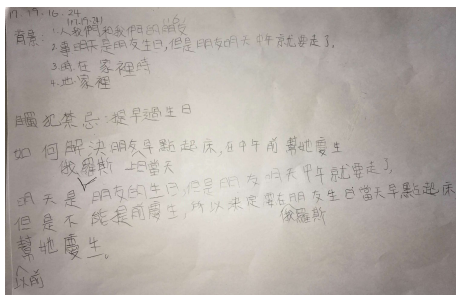 17.49.16.24
(17.49.24)
背景:1.人我們和我們的朋友
2.事明天是朋友生日,但是朋友明天中午就要走了。
3.時在家裡時
4.地家裡
觸犯禁忌:提早過生日
如何解決朋友早點起床,在中午前幫她慶生
俄羅斯 生日當天
明天是朋友的生日,但是朋友明天中午就要走了,
但是不能提前慶生,所以決定要在朋友生日當天早點起床
俄羅斯
幫她慶生。
以前